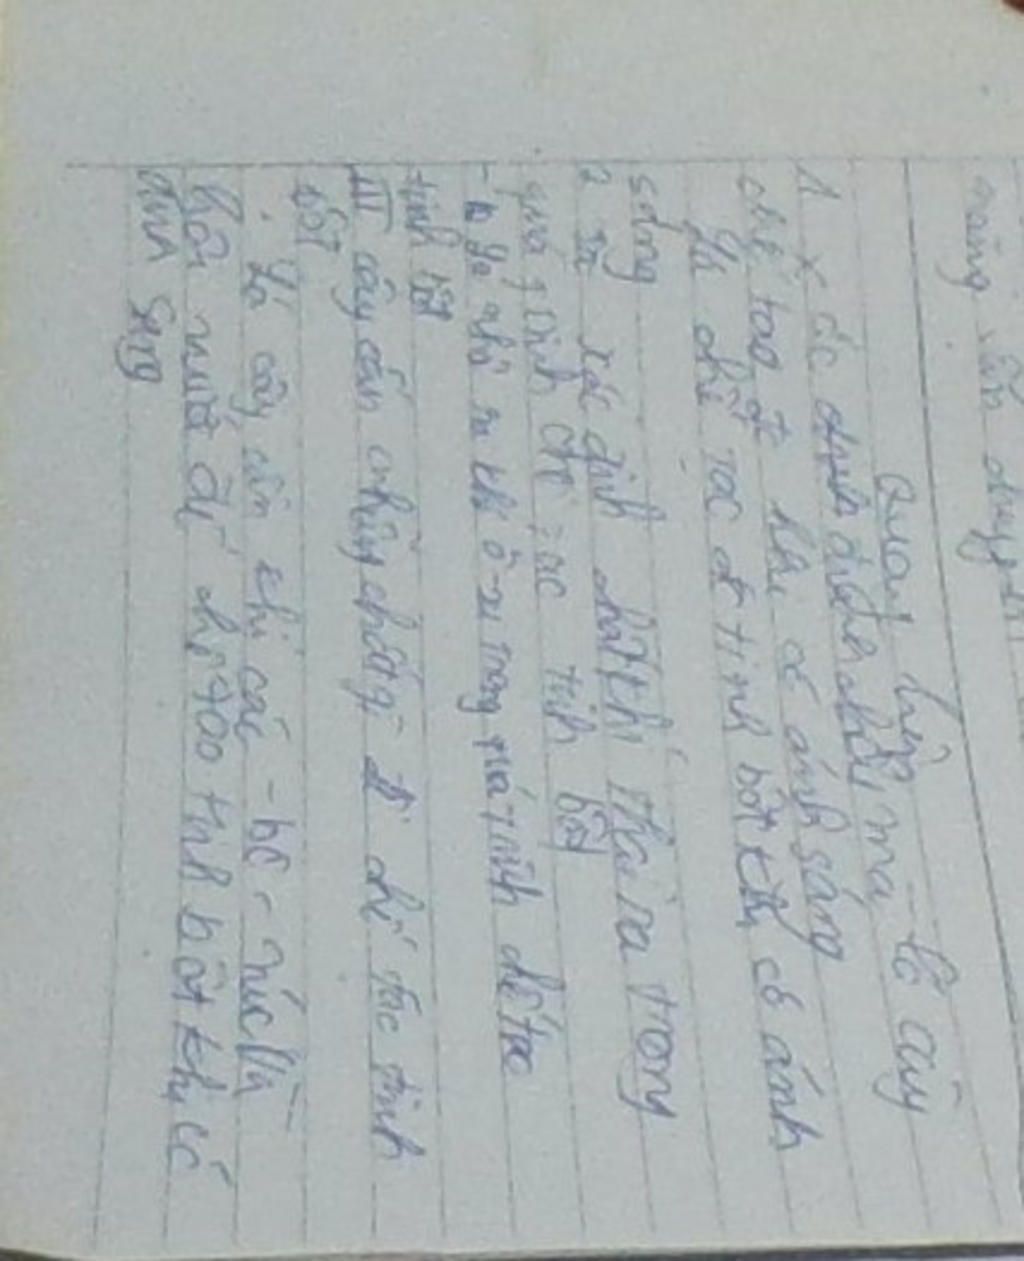 máng
Quang hợp
1 xác định chất mà lá cây
chế tạo đc khi có ánh sáng
lá chế tạc đc tinh bột khi có ánh
sáng
2 xác định chất khí thải ra trong
quá trình chế tạc tinh bột
- lá nhả ra khí ô-xi trong quá trình chế tạo
tinh bột
III cây cần những chất gì để chế tạc tinh
bột
lá cây cần khí các-bô-níc và
nước để chế tạo tinh bột khi có
ánh sáng